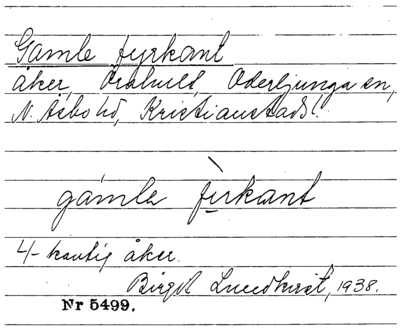 Gamle fyrkant
åker, Örahult, Oderljunga sn,
N. Åsbo hd, Kristianstads l.
gámle fìrkant
4-kantig åker.
Birgit Lundkvist, 1938.
Nr 5499.